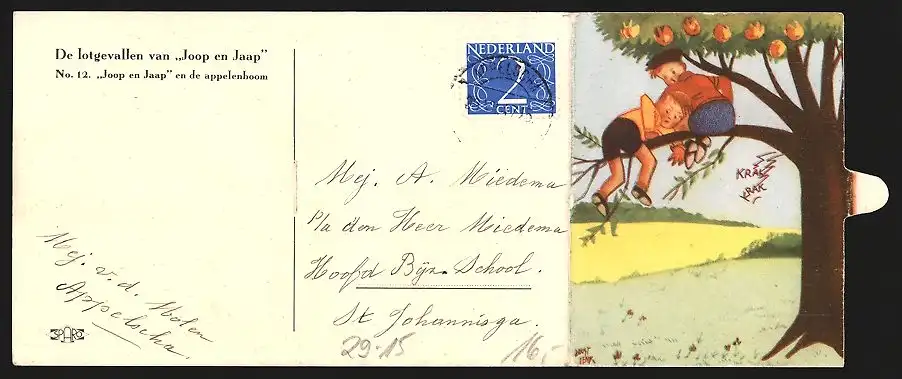 De lotgevallen van „Joop en Jaap"
No. 12. „Joop en Jaap" en de appelenboom
Mej. v. d. Molen
Appelscha.
SPARO
NEDERLAND
2
CENT
Mej. A. Miedema
P/a den Heer Miedema
Hoofd Byz. School.
St Johannisga.
29-15
16,-
KRAK
KRAK